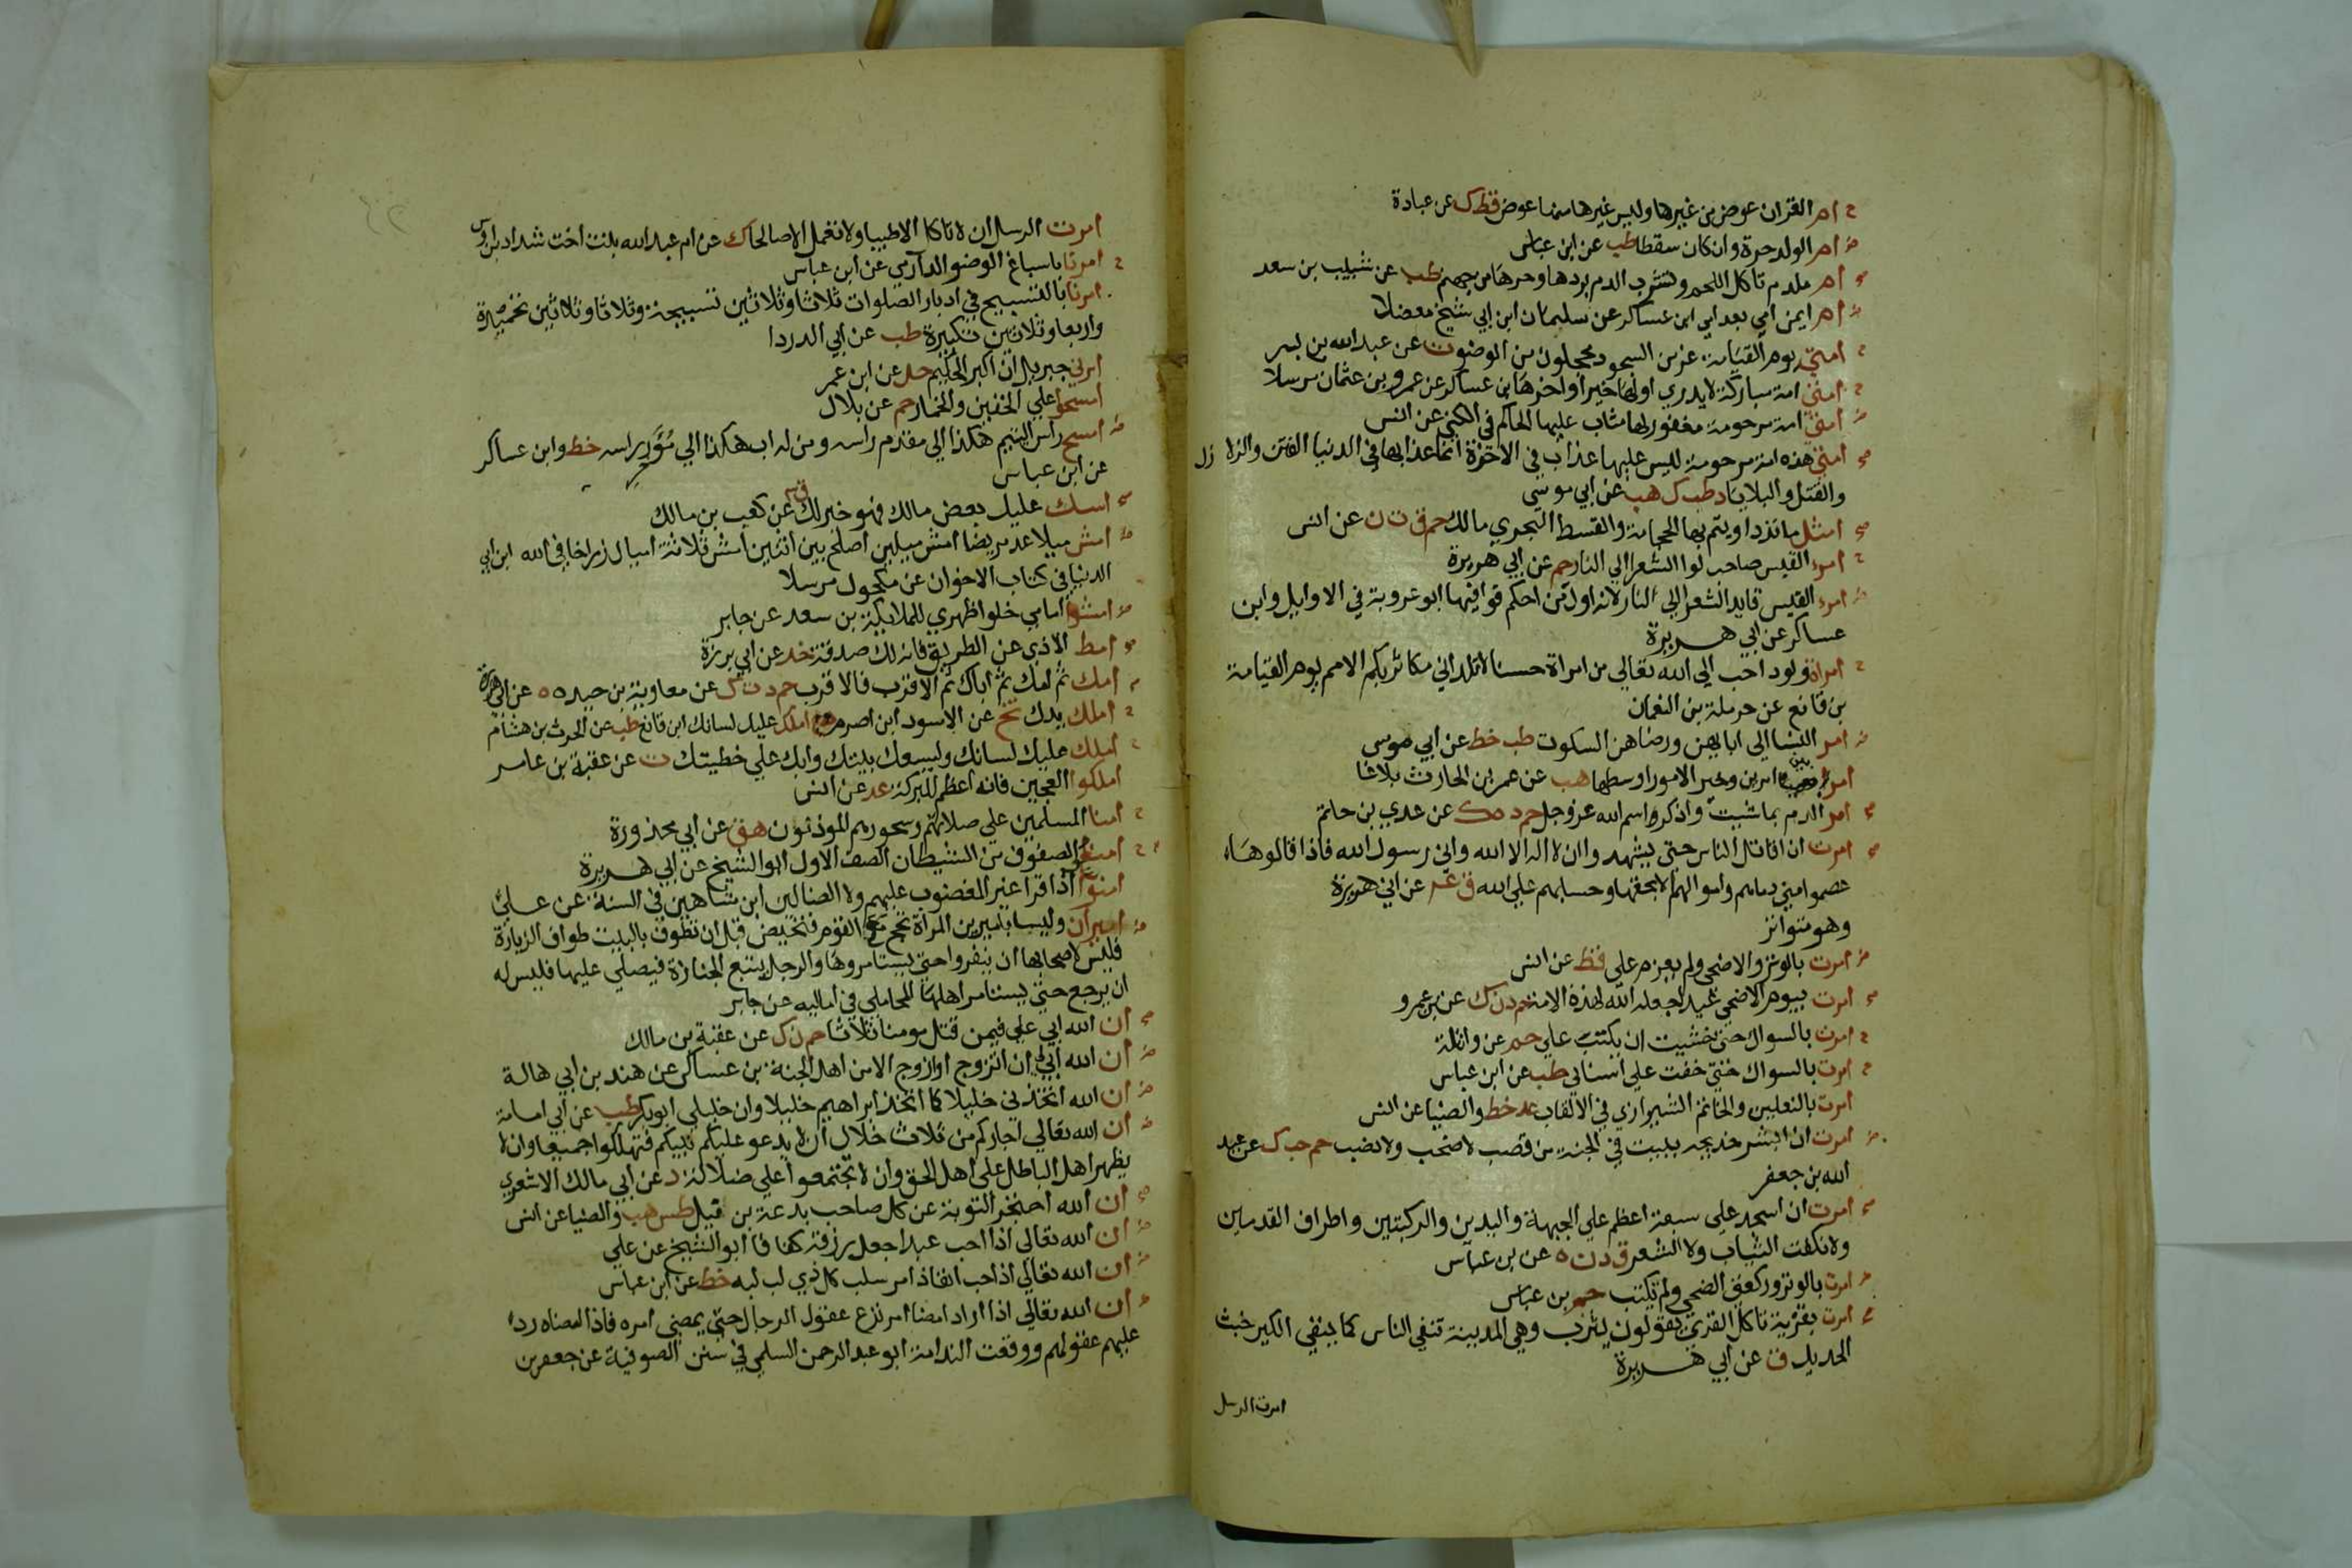 ح ام القران عوض من غيرها وليس غيرها منها عوض قط ك عن عبادة
ض ام الولد حرة وان كان سقطا طب عن ابن عباس
ام ملدم تاكل اللحم وتشرب الدم بردها وحرها من جهنم طب عن شبيب بن سعد
ض ام ايمن امي بعد امي ابن عساكر عن سليمان ابن ابي شيخ معضلا
ح امتي يوم القيامة غر من السجود محجلون من الوضو ت عن عبد الله بن بسر
ح امتي امة مباركة لا يدري اولها خير او اخرها بن عساكر عن عمرو بن عثمان مرسلا
ض امتي امة مرحومة مغفور لها متاب عليها الحاكم في الكني عن انس
امتي هذه امة مرحومة ليس عليها عذاب في الاخرة انما عذابها في الدنيا الفتن والزلازل
والقتل والبلايا د طب ك هب عن ابي موسي
امثل ما تداويتم به الحجامة والقسط البحري مالك حم ق ت ن عن انس
ح امرء القيس صاحب لوا الشعرا الي النار حم عن ابي هريرة
ض امرء القيس قايد الشعرا الي النار لانه اول من احكم قوافيها ابو عروبة في الاوايل وابن
عساكر عن ابي هريرة
ح امراة ولود احب الي الله تعالي من امراة حسنا لا تلد اني مكاثر بكم الامم يوم القيامة
بن قانع عن حرملة بن النعمان
ض امر النسا الي ابايهن ورضاهن السكوت طب خط عن ابي موسي
امرا بين امرين وخير الامور اوسطها هب عن عمر ابن الحارث بلاغا
امر الدم بما شيت واذكر اسم الله عز وجل حم د ه ك عن عدي بن حاتم
امرت ان اقاتل الناس حتي يشهدوا ان لا اله الا الله واني رسول الله فاذا قالوها
عصموا مني دماهم واموالهم الا بحقها وحسابهم علي الله ق عن ابي هريرة
وهو متواتر
ض امرت بالوتر والاضحي ولم يعزم علي قط عن انس
امرت بيوم الاضحي عيدا جعله الله لهذه الامة حم د ن ك عن بن عمرو
ح امرت بالسواك حتي خشيت ان يكتب علي حم عن واثلة
ح امرت بالسواك حتي خفت علي اسناني طب عن ابن عباس
امرت بالنعلين والخاتم الشيرازي في الالقاب عد خط والضيا عن انس
امرت ان ابشر خديجة ببيت في الجنة من قصب لا صخب ولا نصب حم حب ك عن عبد
الله بن جعفر
امرت ان اسجد علي سبعة اعظم علي الجبهة واليدين والركبتين واطراف القدمين
ولا نكفت الثياب ولا الشعر ق د ن ه عن بن عباس
امرت بالوتر وركعتي الضحي ولم تكتب حم بن عباس
امرت بقرية تاكل القري يقولون يثرب وهي المدينة تنفي الناس كما ينفي الكير خبث
الحديد ق عن ابي هريرة
امرت الرسل
امرت الرسل ان لا تاكل الا طيبا ولا تعمل الا صالحا ك عن ام عبد الله بنت اخت شداد بن اوس
ح امرنا باسباغ الوضو الدارمي عن ابن عباس
امرنا بالتسبيح في ادبار الصلوات ثلاثا وثلاثين تسبيحة وثلاثا وثلاثين تحميدة
واربعا وثلاثين تكبيرة طب عن ابي الدردا
امرني جبريل ان اكبر الحكيم حل عن ابن عمر
امسحوا علي الخفين والخمار حم عن بلال
ض امسح راس اليتيم هكذا الي مقدم راسه ومن له اب هكذا الي مؤخر راسه خط وابن عساكر
عن ابن عباس
امسك عليك بعض مالك فهو خير لك ق عن كعب بن مالك
ض امش ميلا عد مريضا امش ميلين اصلح بين اثنين امش ثلاثة اميال زر اخا في الله ابن ابي
الدنيا في كتاب الاخوان عن مكحول مرسلا
امشوا امامي خلوا ظهري للملايكة بن سعد عن جابر
امط الاذي عن الطريق فانه لك صدقة خد عن ابي برزة
امك ثم امك ثم اباك ثم الاقرب فالاقرب حم د ت ك عن معاوية بن حيده ه عن ابي هريرة
ح املك يدك تخ عن الاسود ابن اصرم املك عليك لسانك ابن قانع طب عن الحرث بن هشام
املك عليك لسانك وليسعك بيتك وابك علي خطيتك ت عن عقبة بن عامر
املكوا العجين فانه اعظم للبركة عد عن انس
ح امنا المسلمين علي صلاتهم وسحورهم الموذنون هق عن ابي محذورة
ح امنع الصفوف من الشيطان الصف الاول ابو الشيخ عن ابي هريرة
امنوا اذا قرا غير المغضوب عليهم ولا الضالين ابن شاهين في السنة عن علي
اميران وليسا باميرين المراة تحج مع القوم فتحيض قبل ان تطوف بالبيت طواف الزيارة
فليس لاصحابها ان ينفروا حتي يستامروها والرجل يتبع الجنازة فيصلي عليها فليس له
ان يرجع حتي يستامر اهلها المحاملي في اماليه عن جابر
ان الله ابي علي فيمن قتل مومنا ثلاثا حم ن ك عن عقبة بن مالك
ض ان الله ابي لي ان اتزوج او ازوج الا من اهل الجنة بن عساكر عن هند بن ابي هالة
ض ان الله اتخذني خليلا كما اتخذ ابراهيم خليلا وان خليلي ابو بكر طب عن ابي امامة
ض ان الله تعالي اجاركم من ثلاث خلال ان لا يدعو عليكم نبيكم فتهلكوا جميعا وان لا
يظهر اهل الباطل علي اهل الحق وان لا تجتمعوا علي ضلالة د عن ابي مالك الاشعري
ان الله احتجز التوبة عن كل صاحب بدعة بن فيل طس هب والضيا عن انس
ض ان الله تعالي اذا احب عبدا جعل رزقه كفافا ابو الشيخ عن علي
ان الله تعالي اذا احب انفاذ امر سلب كل ذي لب لبه خط عن ابن عباس
ان الله تعالي اذا اراد امضا امر نزع عقول الرجال حتي يمضي امره فاذا امضاه رد
عليهم عقولهم ووقعت الندامة ابو عبد الرحمن السلمي في سنن الصوفية عن جعفر بن